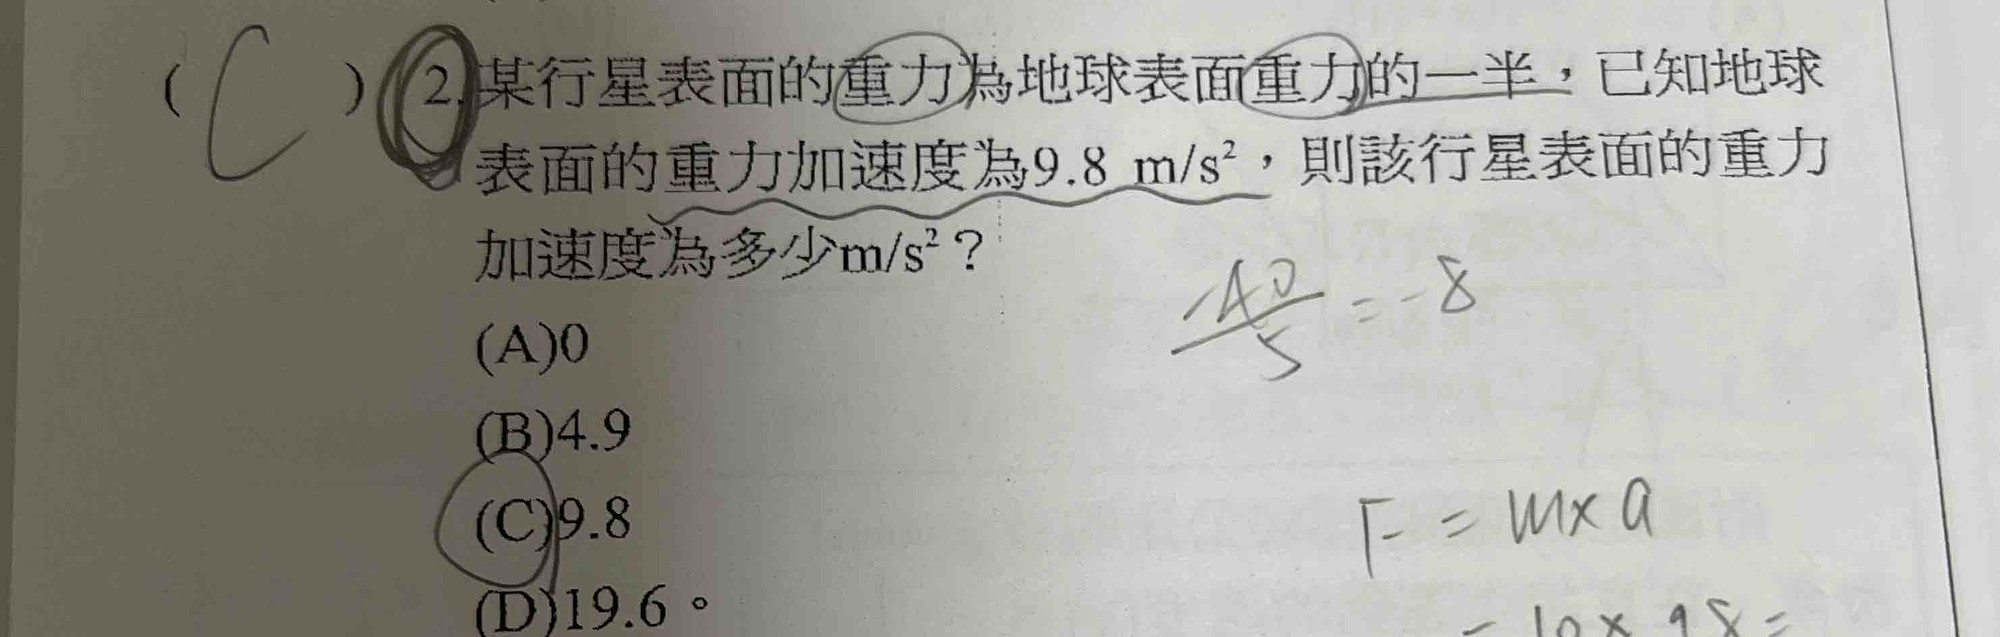 ( C ) 2.某行星表面的重力為地球表面重力的一半，已知地球
表面的重力加速度為9.8 m/s²，則該行星表面的重力
加速度為多少m/s²？
-40/5 = -8
(A)0
(B)4.9
(C)9.8
F = m×a
(D)19.6。
= 10×9.8=